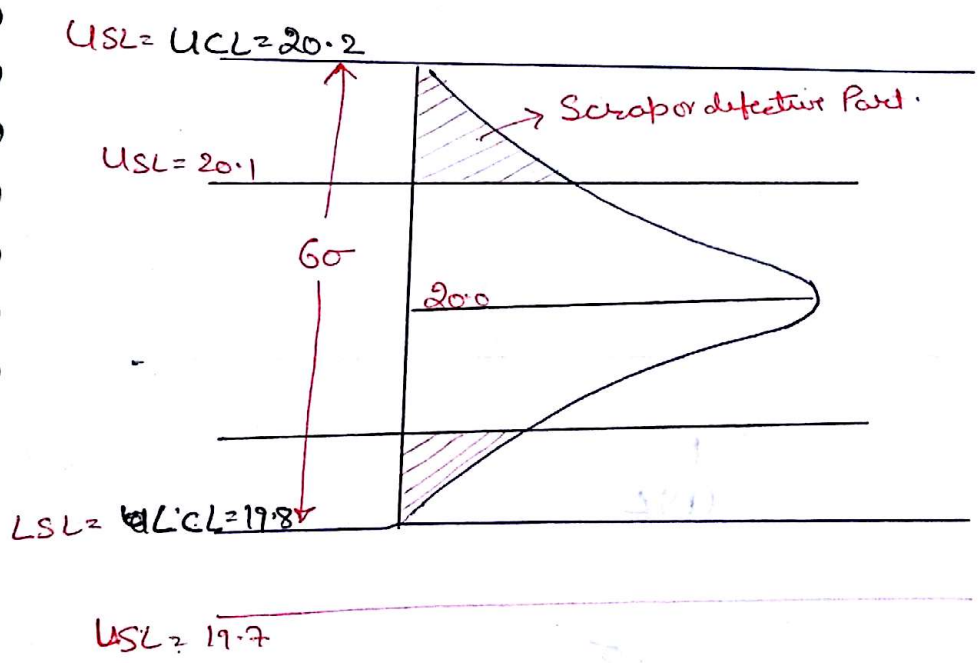 USL = UCL = 20.2
Scrap or defective Part.
USL = 20.1
6σ
20.0
LSL = LCL = 19.8
USL = 19.7